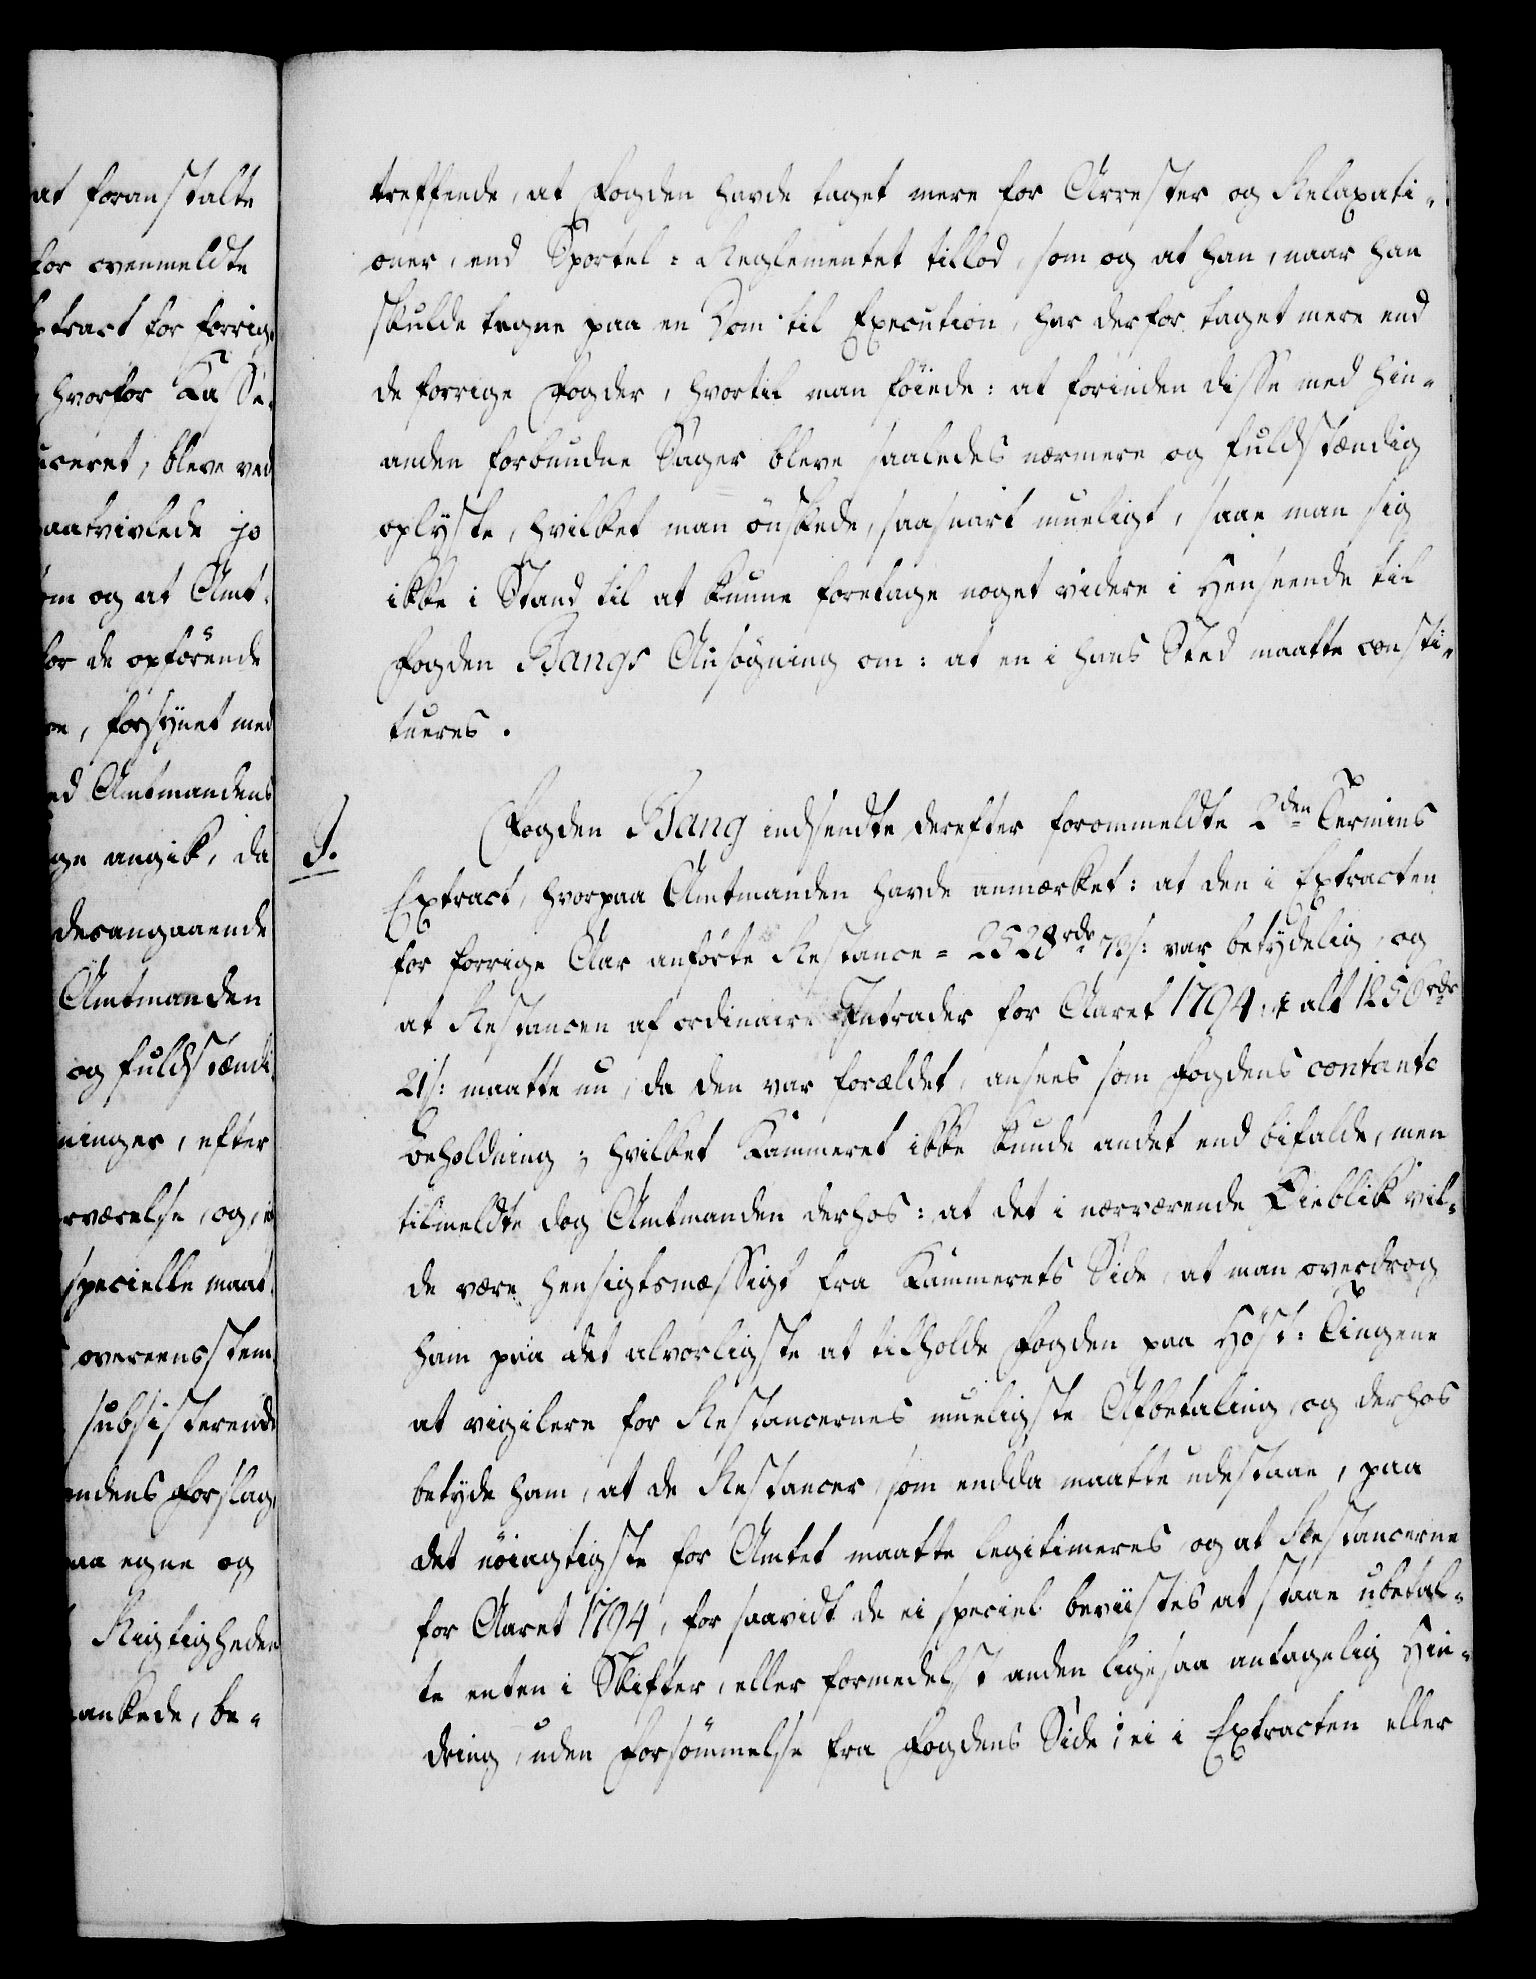 at foranstalte
for ovenmeldte
tract for forrig
hvorfor Ka Se-
ceret, bleve ved
aatvivlede jo
om og at Amt-
for de opförende
, forsÿnet med
ed Amtmandens
ge angik, da
desangaaende
Amtmanden
og fuldstændi-
ninger, efter
rværelse, og, i
specielle maat-
overeensstem-
subsisterende
ndens Forslag,
aa egne og
Rigtigheden
ankede, be-
treffende, at Fogden havde taget mere for Arrester og Relaxati-
oner, end Sportel-Reglementet tillod, som og at han, naar han
skulde tegne paa en Dom til Execution, har derfor taget mere end
de forrige Fogder, hvortil man föiede: at forinden disse med hin-
anden forbundne Sager bleve saaledes nærmere og fuldstændig
oplÿste, hvilket man önskede, saasnart mueligt, saae man sig
ikke i Stand til at kunne foretage noget videre i Henseende til
Fogden Bangs Ansögning om: at en i hans Sted maatte consti-
tueres.
J.
Fogden Bang indsendte derefter forommeldte 2den Termins
Extract, hvorpaa Amtmanden havde anmærket: at den i Extracten
for forrige Aar anförte Restance = 2528 rdr 79 s: var betÿdelig, og
at Restancen af ordinaire Intrader for Aaret 1794, i alt 1256 rdr
21 s: maatte nu, da den var forældet, ansees som Fogdens contante
Beholdning; hvilket Kammeret ikke kunde andet end bifalde, men
tilmeldte dog Amtmanden derhos: at det i nærværende Öieblik vil-
de være hensigtsmæssigt fra Kammerets Side, at man overdrog
ham paa det alvorligste at tilholde Fogden paa Höst-Tingene
at vigilere for Restancernes mueligste Afbetaling, og derhos
betÿde ham, at de Restancer, som endda maatte udestaae, paa
det nöiagtigste for Amtet maatte legitimeres, og at Restancerne
for Aaret 1794, for saavidt de ei speciel beviistes at staae ubetal-
te enten i Skifter, eller formedelst anden ligesaa antagelig Hin-
dring, uden Forsömmelse fra Fogdens Side, ei i Extracten eller